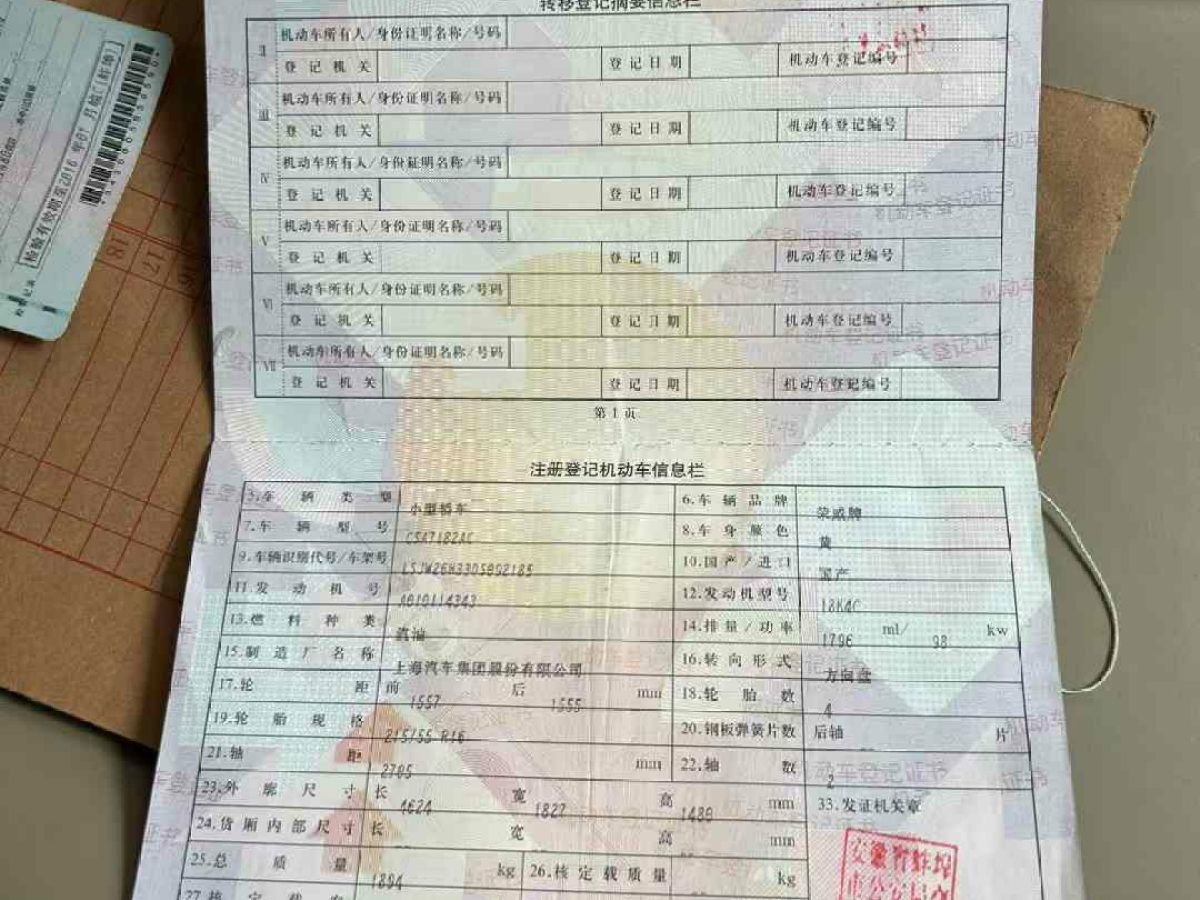 转移登记摘要信息栏
II 机动车所有人/身份证明名称/号码
登记机关 登记日期 机动车登记编号
III 机动车所有人/身份证明名称/号码
登记机关 登记日期 机动车登记编号
IV 机动车所有人/身份证明名称/号码
登记机关 登记日期 机动车登记编号
V 机动车所有人/身份证明名称/号码
登记机关 登记日期 机动车登记编号
VI 机动车所有人/身份证明名称/号码
登记机关 登记日期 机动车登记编号
VII 机动车所有人/身份证明名称/号码
登记机关 登记日期 机动车登记编号
第 1 页
注册登记机动车信息栏
5.车辆类型 小型轿车 6.车辆品牌 荣威牌
7.车辆型号 CSA7182AC 8.车身颜色 黄
9.车辆识别代号/车架号 LSJW26H3305992185 10.国产/进口 国产
11.发动机号 A010114343 12.发动机型号 18K4C
13.燃料种类 汽油 14.排量/功率 1796 ml/ 98 kw
15.制造厂名称 上海汽车集团股份有限公司 16.转向形式 方向盘
17.轮距 前 1557 后 1555 mm 18.轮胎数 4
19.轮胎规格 215/55 R16 20.钢板弹簧片数 后轴 -- 片
21.轴距 2705 mm 22.轴数 2
23.外廓尺寸 长 4624 宽 1827 高 1480 mm 33.发证机关章
24.货厢内部尺寸 长 宽 高 mm
25.总质量 1894 kg 26.核定载质量 -- kg
安徽省蚌埠
市公安局
检验有效期至2016年07月皖C(蚌埠)